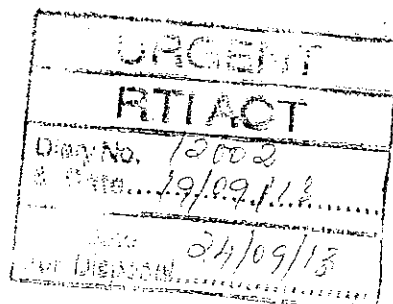 URGENT
RTI ACT
Diary No. 12002
& Date......19/09/13
Date 24/09/13
for Disposal..................